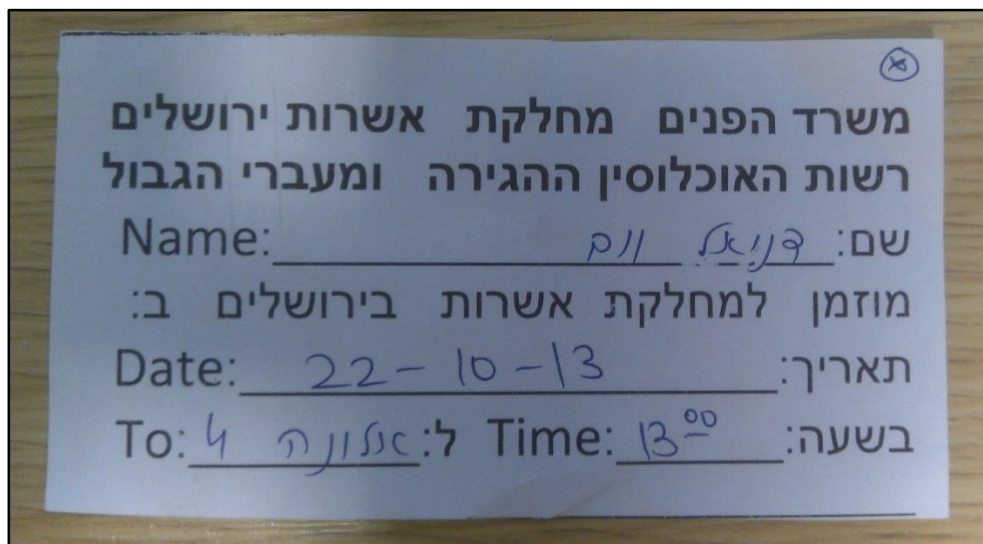 משרד הפנים מחלקת אשרות ירושלים
רשות האוכלוסין ההגירה ומעברי הגבול
שם: דניאל ווב Name:
מוזמן למחלקת אשרות בירושלים ב:
תאריך: 22-10-13 Date:
בשעה: 13:00 Time: ל: אלונה 4 To: